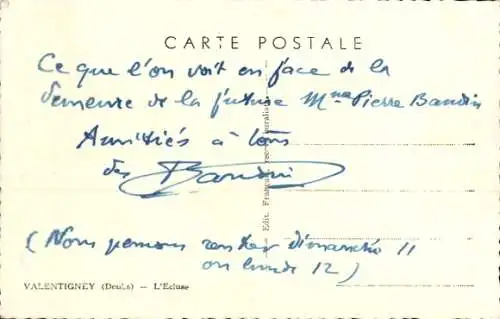 CARTE POSTALE
Ce que l'on voit en face de la
demeure de la future Mme Pierre Baudin
Amitiés à tous
des Baudin
(Nous pensons rentrer dimanche 11
ou lundi 12)
VALENTIGNEY (Doubs) — L'Ecluse
Edit. Franç